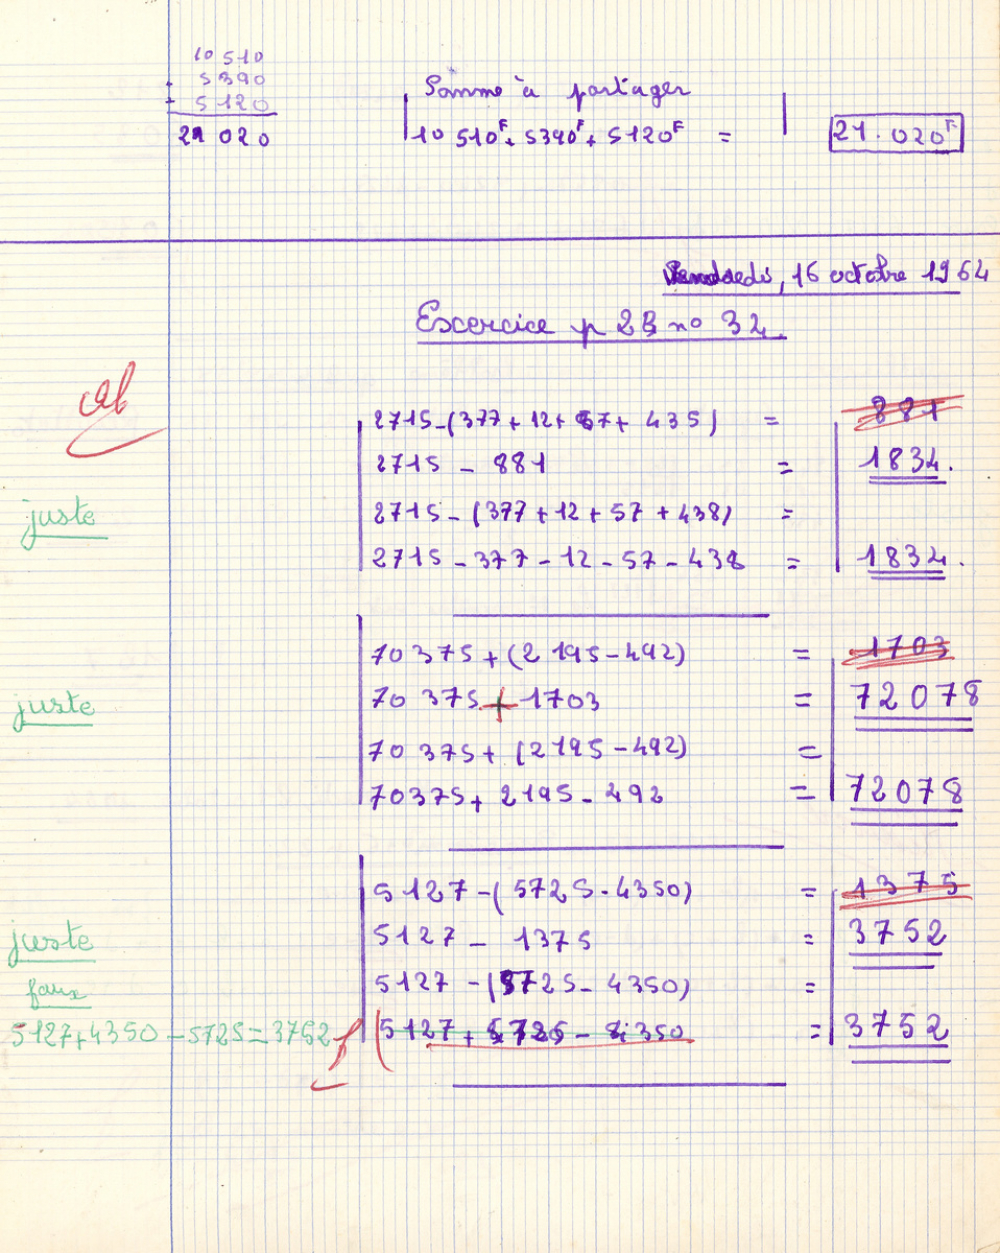 10 510
5390
+ 5120
21 020
Somme à partager
10 510F + 5390F + 5120F = 21.020F
Vendredi, 16 octobre 1964
Escercice p 23 no 32.
2715-(377 + 12 + 57 + 435) = 881
2715 - 881 = 1834.
juste
2715 - (377 + 12 + 57 + 438) =
2715 - 377 - 12 - 57 - 438 = 1834.
70375 + (2195-492) = 1703
juste
70 375 + 1703 = 72078
70 375 + (2195-492) =
70375 + 2195 - 492 = 72078
5127 - (5725-4350) = 1375
juste
5127 - 1375 = 3752
faux
5127 - (5725 - 4350) =
5127+4350-5725=3752
5127 + 5725 - 4350 = 3752